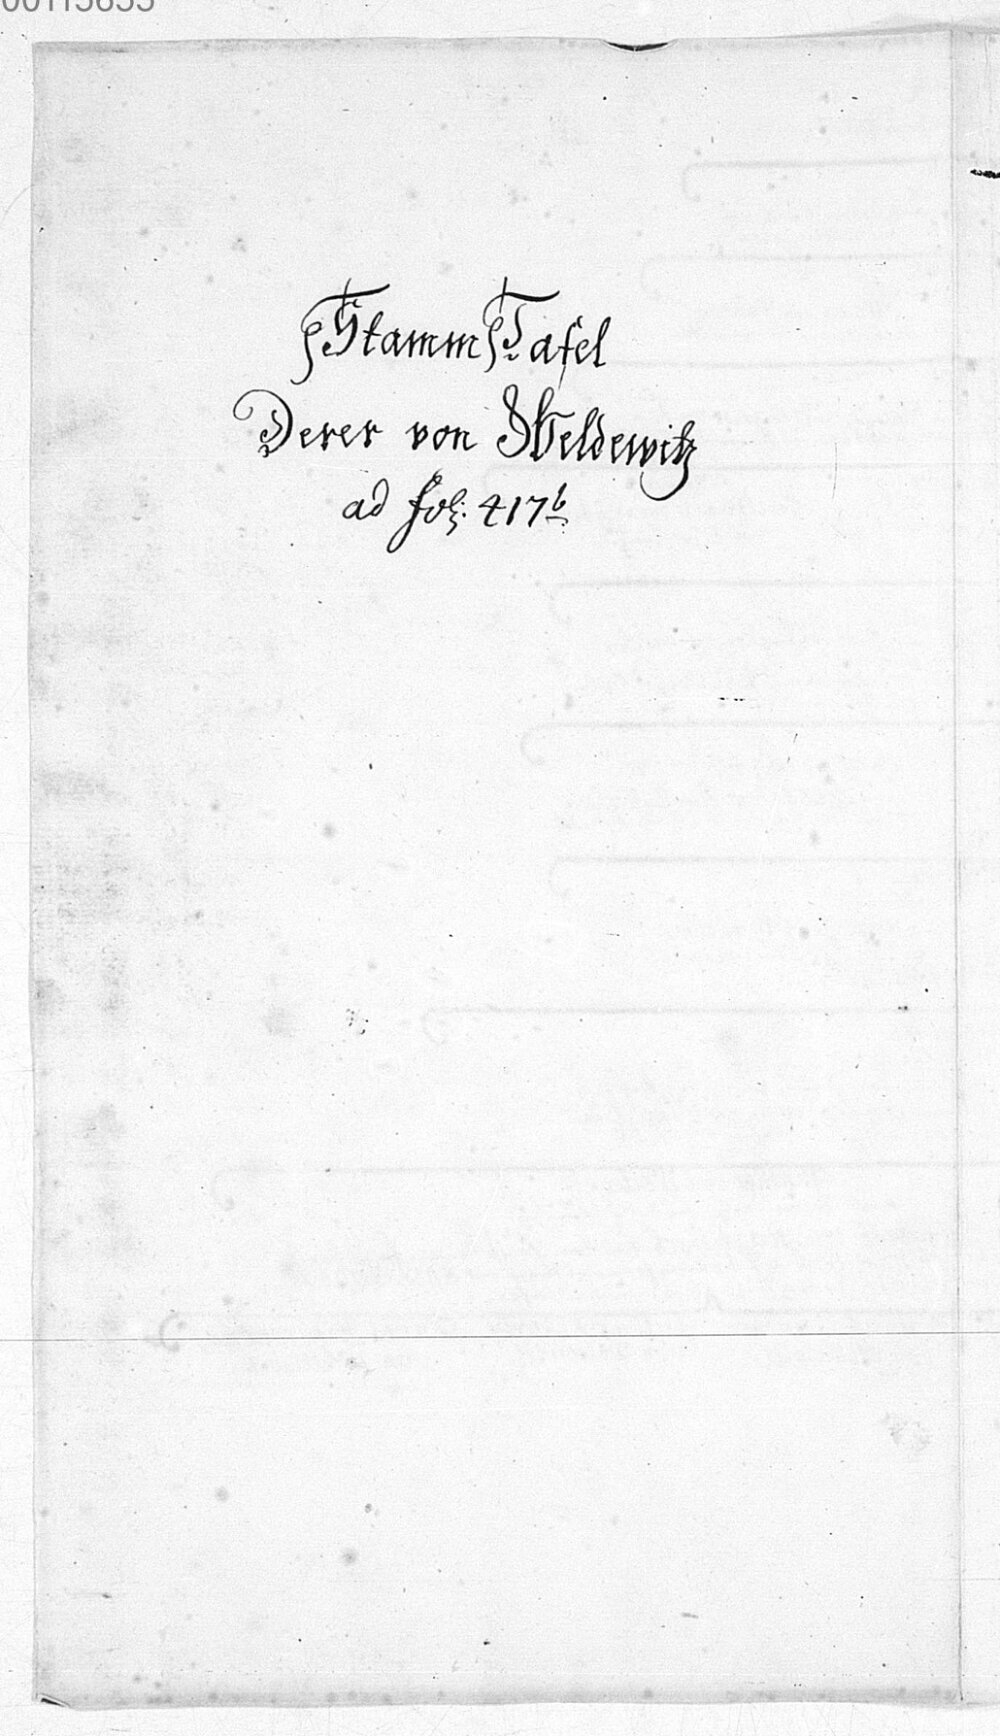 00115655
Stamm Tafel
Derer von Weldewitz
ad fol: 417b